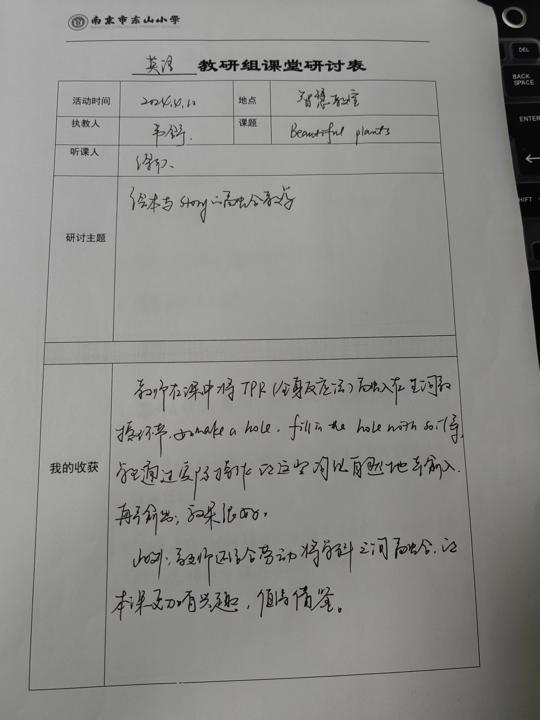 南京市东山小学
英语 教研组课堂研讨表
活动时间 2024.4.10 地点 智慧教室
执教人 课题 Beautiful plants
听课人
研讨主题 绘本与story的融合教学
我的收获
教师在课中将TPR(全身反应法)融入在生词的
操练环节,如make a hole. fill in the hole with soil等,
学生通过实际操作让这堂词汇自然地去输入,
再予输出,效果很好。
此外,教师还结合劳动将学科之间融合,让
本课更加有兴趣,值得借鉴。
DEL
BACK
SPACE
ENTER
SHIFT